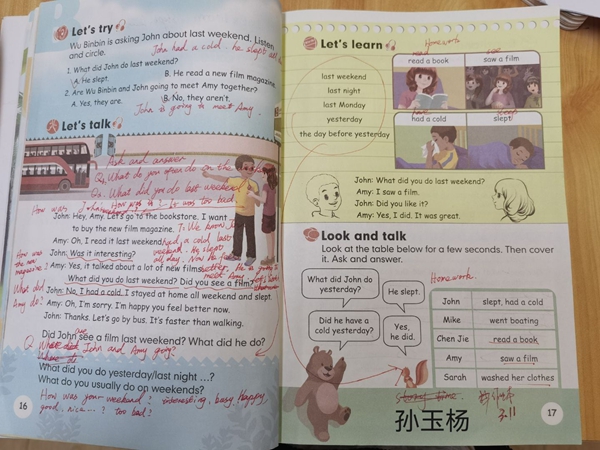 Let's try
Wu Binbin is asking John about last weekend. Listen
and circle.
John had a cold. he slept all
1. What did John do last weekend?
A. He slept.
B. He read a new film magazine.
2. Are Wu Binbin and John going to meet Amy together?
A. Yes, they are.
B. No, they aren't.
John is going to meet Amy.
Let's talk
Ask and answer
Q1. What do you often do on the
Q2. What did you do last weekend
John: Hey, Amy. Let's go to the bookstore. I want
to buy the new film magazine.
Amy: Oh, I read it last weekend.
John: Was it interesting?
Amy: Yes, it talked about a lot of new films.
What did you do last weekend? Did you see a film?
John: No, I had a cold. I stayed at home all weekend and slept.
Amy: Oh, I'm sorry. I'm happy you feel better now.
John: Thanks. Let's go by bus. It's faster than walking.
Did John see a film last weekend? What did he do?
John and Amy going?
What did you do yesterday/last night ...?
What do you usually do on weekends?
How was your weekend? interesting, busy, happy
good, nice...? too bad?
16
Let's learn
Homework
read
read a book
saw a film
last weekend
last night
last Monday
yesterday
the day before yesterday
had a cold
slept
John: What did you do last weekend?
Amy: I saw a film.
John: Did you like it?
Amy: Yes, I did. It was great.
Look and talk
Look at the table below for a few seconds. Then cover
it. Ask and answer.
What did John do
yesterday?
He slept.
Did he have a
cold yesterday?
Yes,
he did.
Homework
John slept, had a cold
Mike went boating
Chen Jie read a book
Amy saw a film
Sarah washed her clothes
3.11
孙玉杨
17